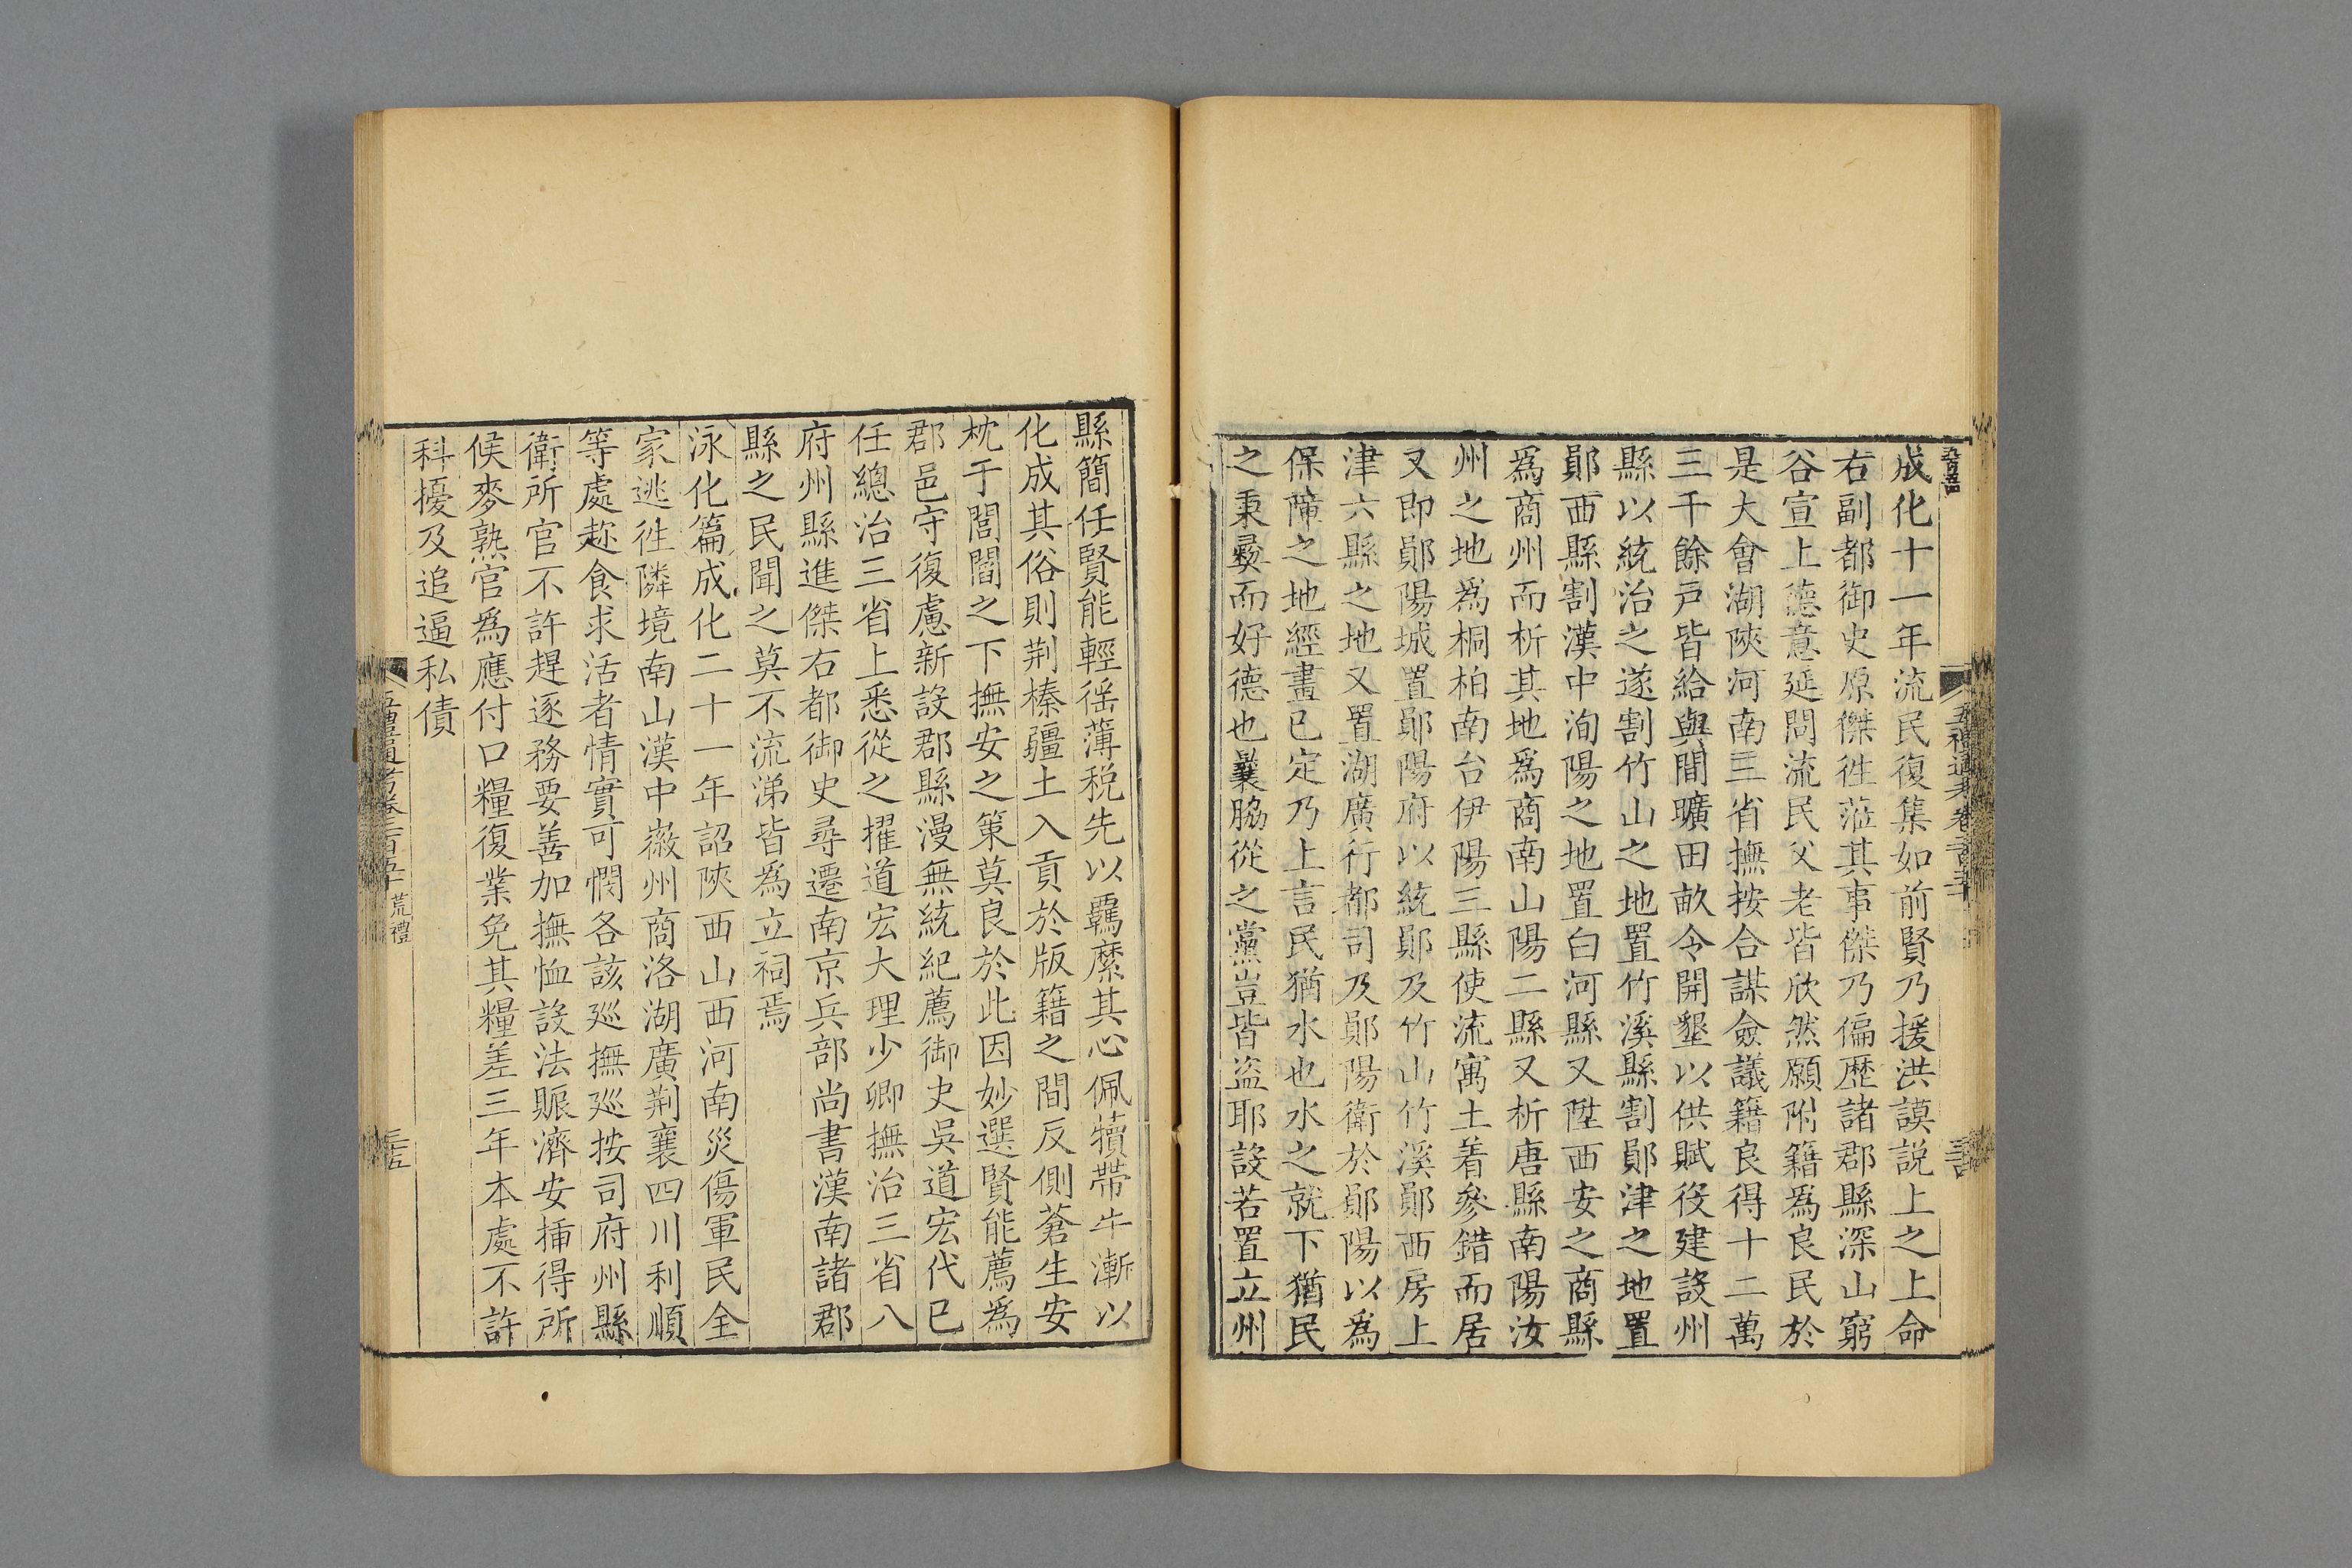 成化十一年流民復集如前賢乃援洪謨説上之上命
右副都御史原傑徃蒞其事傑乃徧歴諸郡縣深山窮
谷宣上德意延問流民父老皆欣然願附籍爲良民於
是大會湖陝河南三省撫按合謀僉議籍良得十二萬
三千餘戸皆給與間曠田畝令開墾以供賦役建設州
縣以統治之遂割竹山之地置竹溪縣割鄖津之地置
鄖西縣割漢中洵陽之地置白河縣又陞西安之商縣
爲商州而析其地爲商南山陽二縣又析唐縣南陽汝
州之地爲桐柏南台伊陽三縣使流寓土着參錯而居
又即鄖陽城置鄖陽府以統鄖及竹山竹溪鄖西房上
津六縣之地又置湖廣行都司及鄖陽衛於鄖陽以爲
保障之地經畫已定乃上言民猶水也水之就下猶民
之秉彞而好德也曩脇從之黨豈皆盗耶設若置立州
縣簡任賢能輕徭薄税先以羈縻其心佩犢帶牛漸以
化成其俗則荆榛疆土入貢於版籍之間反側蒼生安
枕于閭閻之下撫安之策莫良於此因妙選賢能薦爲
郡邑守復慮新設郡縣漫無統紀薦御史吳道宏代巳
任總治三省上悉從之擢道宏大理少卿撫治三省八
府州縣進傑右都御史尋遷南京兵部尚書漢南諸郡
縣之民聞之莫不流涕皆爲立祠焉
泳化篇成化二十一年詔陝西山西河南災傷軍民全
家逃徃隣境南山漢中徽州商洛湖廣荆襄四川利順
等處趂食求活者情實可憫各該廵撫廵按司府州縣
衛所官不許趕逐務要善加撫恤設法賑濟安揷得所
候麥熟官爲應付口糧復業免其糧差三年本處不許
科擾及追逼私債
五禮通考卷二百五十 荒禮
三五